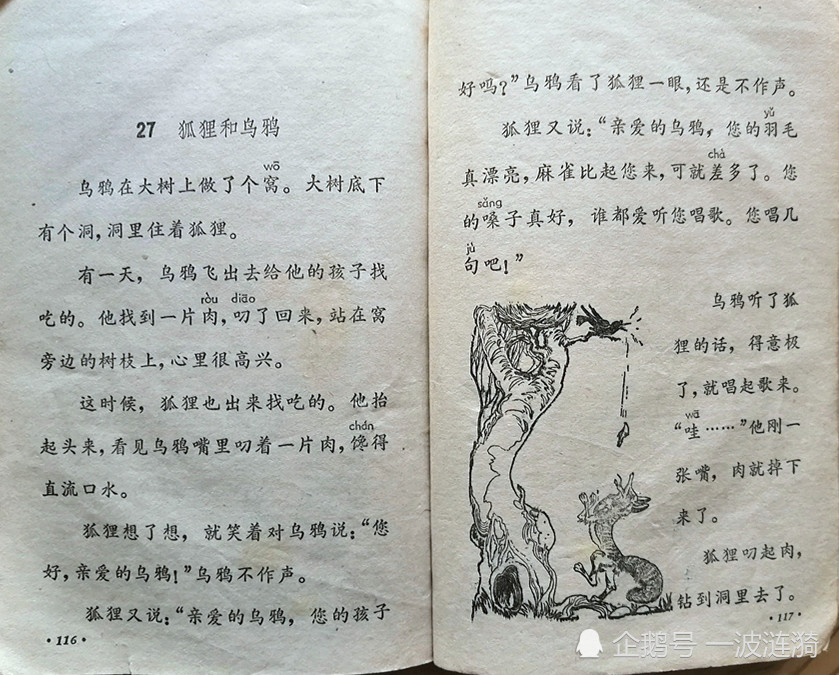 27 狐狸和乌鸦
wō
乌鸦在大树上做了个窝。大树底下
有个洞,洞里住着狐狸。
有一天,乌鸦飞出去给他的孩子找
ròu diāo
吃的。他找到一片肉,叼了回来,站在窝
旁边的树枝上,心里很高兴。
这时候,狐狸也出来找吃的。他抬
chán
起头来,看见乌鸦嘴里叼着一片肉,馋得
直流口水。
狐狸想了想,就笑着对乌鸦说:“您
好,亲爱的乌鸦!”乌鸦不作声。
狐狸又说:“亲爱的乌鸦,您的孩子
·116·
好吗?”乌鸦看了狐狸一眼,还是不作声。
yǔ
狐狸又说:“亲爱的乌鸦,您的羽毛
chà
真漂亮,麻雀比起您来,可就差多了。您
sǎng
的嗓子真好,谁都爱听您唱歌。您唱几
jù
句吧!”
乌鸦听了狐
狸的话,得意极
了,就唱起歌来。
wā
“哇……”他刚一
张嘴,肉就掉下
来了。
狐狸叼起肉,
钻到洞里去了。
·117·
企鹅号 一波涟漪